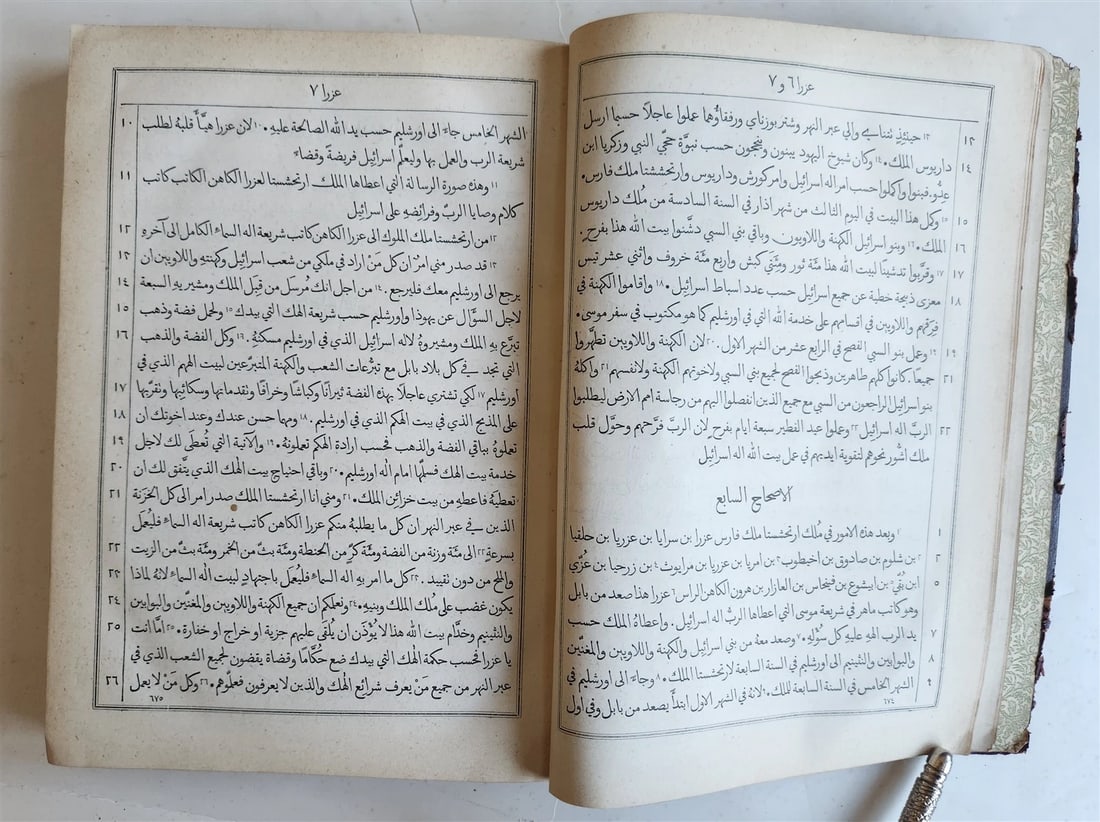 عزرا ٦ و ٧
١٢ ١٣ حينئذٍ تتناي والي عبر النهر وشتر بوزناي ورفقاؤهما عملوا عاجلًا حسبما ارسل
١٤ داريوس الملك. ١٤ وكان شيوخ اليهود يبنون وينجحون حسب نبوَّة حجَّي النبي وزكريا ابن
عِدُّو. فبنوا واكملوا حسب امر اله اسرائيل وامر كورش وداريوس وارتحششتا ملك فارس.
١٥ ١٥ وكمل هذا البيت في اليوم الثالث من شهر اذار في السنة السادسة من مُلك داريوس
١٦ الملك. ١٦ وبنو اسرائيل الكهنة واللاويون وباقي بني السبي دشَّنوا بيت الله هذا بفرحٍ.
١٧ ١٧ وقرَّبوا تدشينًا لبيت الله هذا مئة ثور ومئتي كبش واربع مئة خروف واثني عشر تيس
١٨ معزى ذبيحة خطية عن جميع اسرائيل حسب عدد اسباط اسرائيل. ١٨ واقاموا الكهنة في
فِرَقهم واللاويين في اقسامهم على خدمة الله التي في اورشليم كما هو مكتوب في سفر موسى.
١٩ ١٩ وعمل بنو السبي الفصح في الرابع عشر من الشهر الاول. ٢٠ لان الكهنة واللاويين تطهَّروا
٢١ جميعًا. كانوا كلهم طاهرين وذبحوا الفصح لجميع بني السبي ولاخوتهم الكهنة ولانفسهم ٢١ واكلهُ
بنو اسرائيل الراجعون من السبي مع جميع الذين انفصلوا اليهم من رجاسة امم الارض ليطلبوا
٢٢ الربَّ اله اسرائيل ٢٢ وعملوا عيد الفطير سبعة ايام بفرحٍ لان الربَّ فرَّحهم وحوَّل قلب
ملك اشُّور نحوهم لتقوية ايديهم في عمل بيت الله اله اسرائيل
الاصحاح السابع
١ ١ وبعد هذه الامور في مُلك ارتحششتا ملك فارس عزرا بن سرايا بن عزريا بن حلقيا
٢ ٢ بن شلوم بن صادوق بن اخيطوب ٣ بن امريا بن عزريا بن مرايوث ٤ بن زرحيا بن عُزّي
٥ ابن بُقّي ٥ بن ابيشوع بن فينحاس بن العازار بن هرون الكاهن الراس ٦ عزرا هذا صعد من بابل
وهو كاتب ماهر في شريعة موسى التي اعطاها الربُّ اله اسرائيل. واعطاهُ الملك حسب
٧ يد الرب الههِ عليهِ كل سُؤْلهِ. ٧ وصعد معهُ من بني اسرائيل والكهنة واللاويين والمغنّين
٨ والبوابين والنثينيم الى اورشليم في السنة السابعة لارتحششتا الملك. ٨ وجاءَ الى اورشليم في
٩ الشهر الخامس في السنة السابعة للملك. ٩ لانهُ في الشهر الاول ابتدأَ يصعد من بابل وفي اول
٦٧٤
عزرا ٧
١٠ الشهر الخامس جاءَ الى اورشليم حسب يد الله الصالحة عليهِ. ١٠ لان عزرا هيَّأَ قلبهُ لطلب
شريعة الرب والعمل بها وليعلّم اسرائيل فريضةً وقضاءً
١١ ١١ وهذه صورة الرسالة التي اعطاها الملك ارتحششتا لعزرا الكاهن الكاتب كاتب
كلام وصايا الربّ وفرائضهِ على اسرائيل
١٢ ١٢ من ارتحششتا ملك الملوك الى عزرا الكاهن كاتب شريعة اله السماء الكامل الى آخرهِ
١٣ ١٣ قد صدر مني امرٌ ان كل مَنْ اراد في ملكي من شعب اسرائيل وكهنتهِ واللاويين ان
١٤ يرجع الى اورشليم معك فليرجع. ١٤ من اجل انك مُرسَل من قِبَل الملك ومشيريهِ السبعة
١٥ لاجل السؤَال عن يهوذا واورشليم حسب شريعة الهك التي بيدك ١٥ ولحمل فضة وذهب
١٦ تبرَّع بهِ الملك ومشيروهُ لاله اسرائيل الذي في اورشليم مسكنهُ. ١٦ وكل الفضة والذهب
التي تجد في كل بلاد بابل مع تبرُّعات الشعب والكهنة المتبرّعين لبيت الههم الذي في
١٧ اورشليم ١٧ لكي تشتري عاجلًا بهذه الفضة ثيرانًا وكباشًا وخرافًا وتقدماتها وسكائبها وتقرّبها
١٨ على المذبح الذي في بيت الهكم الذي في اورشليم. ١٨ ومهما حسن عندك وعند اخوتك ان
١٩ تعملوهُ بباقي الفضة والذهب فحسب ارادة الهكم تعملونهُ. ١٩ والآنية التي تُعطَى لك لاجل
٢٠ خدمة بيت الهك فسلّمها امام اله اورشليم. ٢٠ وباقي احتياج بيت الهك الذي يتفق لك ان
٢١ تعطيَهُ فاعطهِ من بيت خزائن الملك. ٢١ ومني انا ارتحششتا الملك صدر امر الى كل الخزَنة
الذين في عبر النهر ان كل ما يطلبهُ منكم عزرا الكاهن كاتب شريعة اله السماء فليُعمَل
٢٢ بسرعةٍ ٢٢ الى مئة وزنة من الفضة ومئة كرّ من الحنطة ومئة بثّ من الخمر ومئة بثّ من الزيت
٢٣ والملح من دون تقييد. ٢٣ كل ما امر بهِ اله السماء فليُعمَل باجتهادٍ لبيت اله السماء لانهُ لماذا
٢٤ يكون غضب على مُلك الملك وبنيهِ. ٢٤ ونعلمكم ان جميع الكهنة واللاويين والمغنّين والبوابين
٢٥ والنثينيم وخدَّام بيت الله هذا لا يُؤْذَن ان يُلقَى عليهم جزية او خراج او خفارة. ٢٥ امَّا انت
يا عزرا فحسب حكمة الهك التي بيدك ضع حُكَّامًا وقضاة يقضون لجميع الشعب الذي في
٢٦ عبر النهر من جميع مَنْ يعرف شرائع الهك والذين لا يعرفون فعلّموهم. ٢٦ وكل مَنْ لا يعمل
٦٧٥